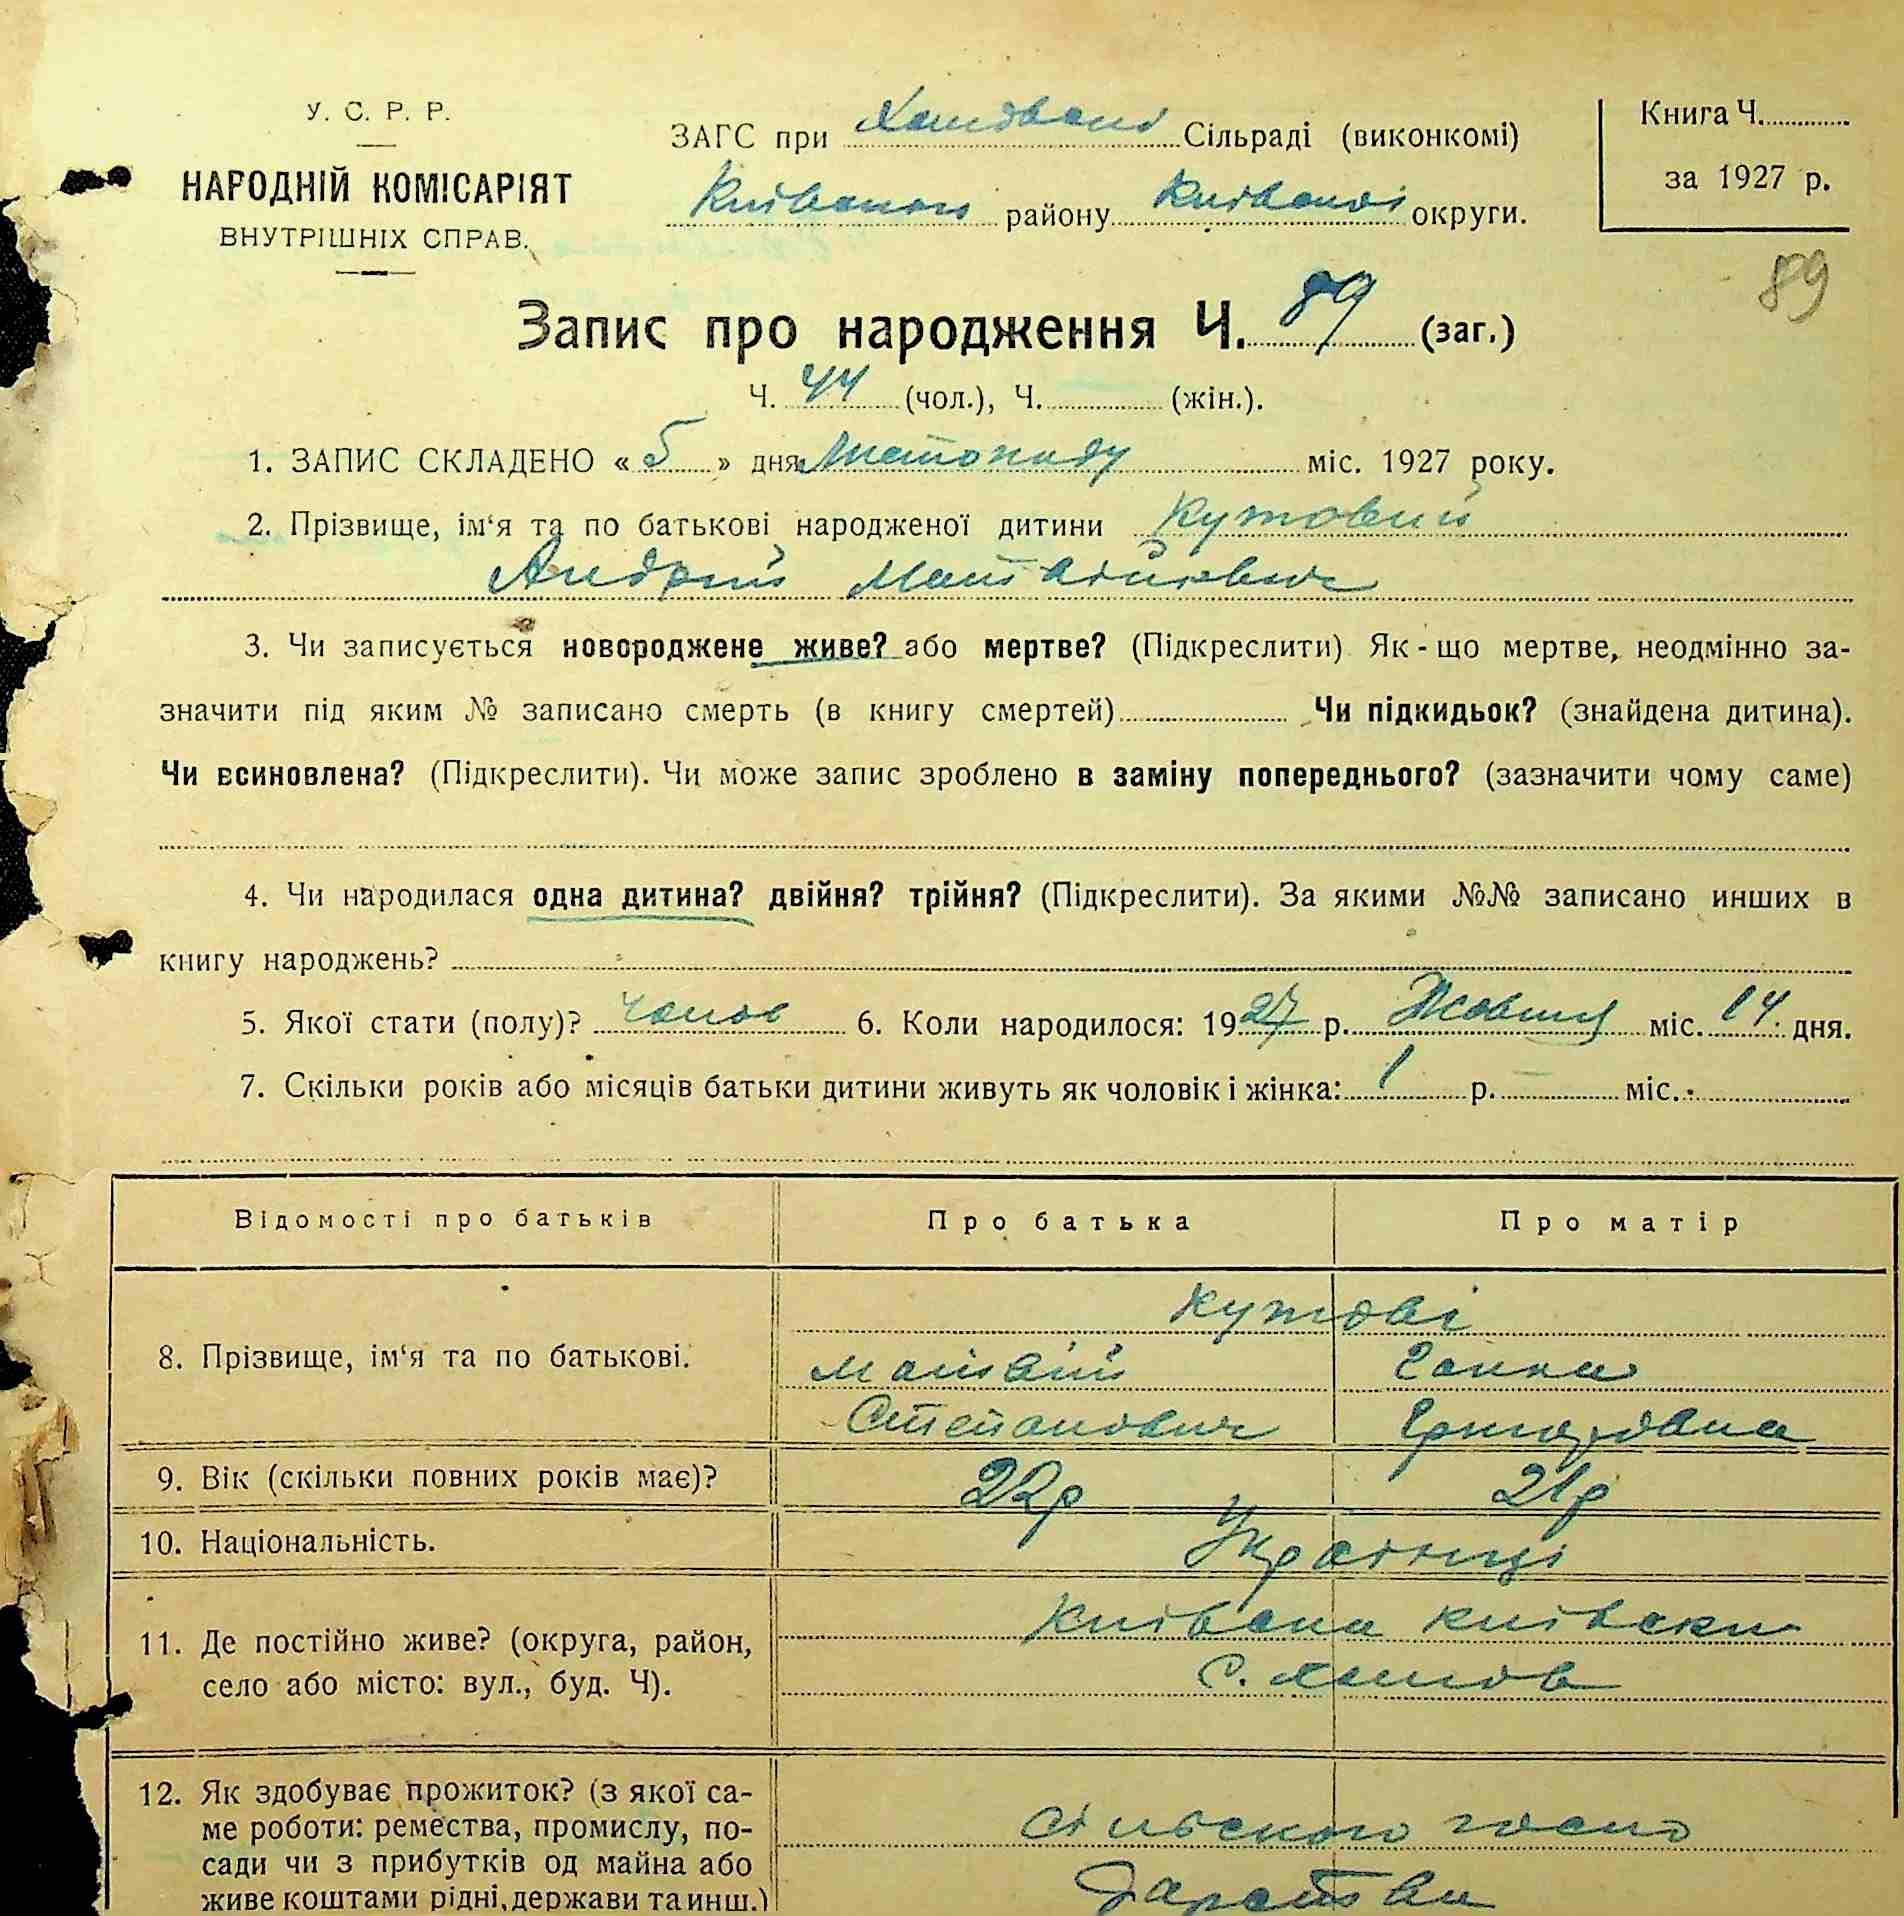 У. С. Р. Р.
НАРОДНІЙ КОМІСАРІЯТ
ВНУТРІШНІХ СПРАВ.
ЗАГС при Хотівські Сільраді (виконкомі)
Київського району Київської округи.
Книга Ч.
за 1927 р.
89
Запис про народження Ч. 89 (заг.)
Ч. 44 (чол.), Ч. (жін.).
1. ЗАПИС СКЛАДЕНО « 5 » дня Листопаду міс. 1927 року.
2. Прізвище, ім‘я та по батькові народженої дитини Кутовий
Андрій Матвійович
3. Чи записується новороджене живе? або мертве? (Підкреслити) Як-що мертве, неодмінно за-
значити під яким № записано смерть (в книгу смертей) Чи підкидьок? (знайдена дитина).
Чи всиновлена? (Підкреслити). Чи може запис зроблено в заміну попереднього? (зазначити чому саме)
4. Чи народилася одна дитина? двійня? трійня? (Підкреслити). За якими №№ записано инших в
книгу народжень?
5. Якої стати (полу)? чолов 6. Коли народилося: 1927 р. Жовтня міс. 14 дня.
7. Скільки років або місяців батьки дитини живуть як чоловік і жінка: 1 р. — міс.
Відомості про батьків Про батька Про матір
Кутові
8. Прізвище, ім‘я та по батькові. Матвій Ганна
Степанович Григоровна
9. Вік (скільки повних років має)? 22р 21р
10. Національність. Українці
11. Де постійно живе? (округа, район, Київська Київськи
село або місто: вул., буд. Ч). с. Хотів
12. Як здобуває прожиток? (з якої са-
ме роботи: ремества, промислу, по- сільского госпо
сади чи з прибутків од майна або
живе коштами рідні, держави та инш.) дарства